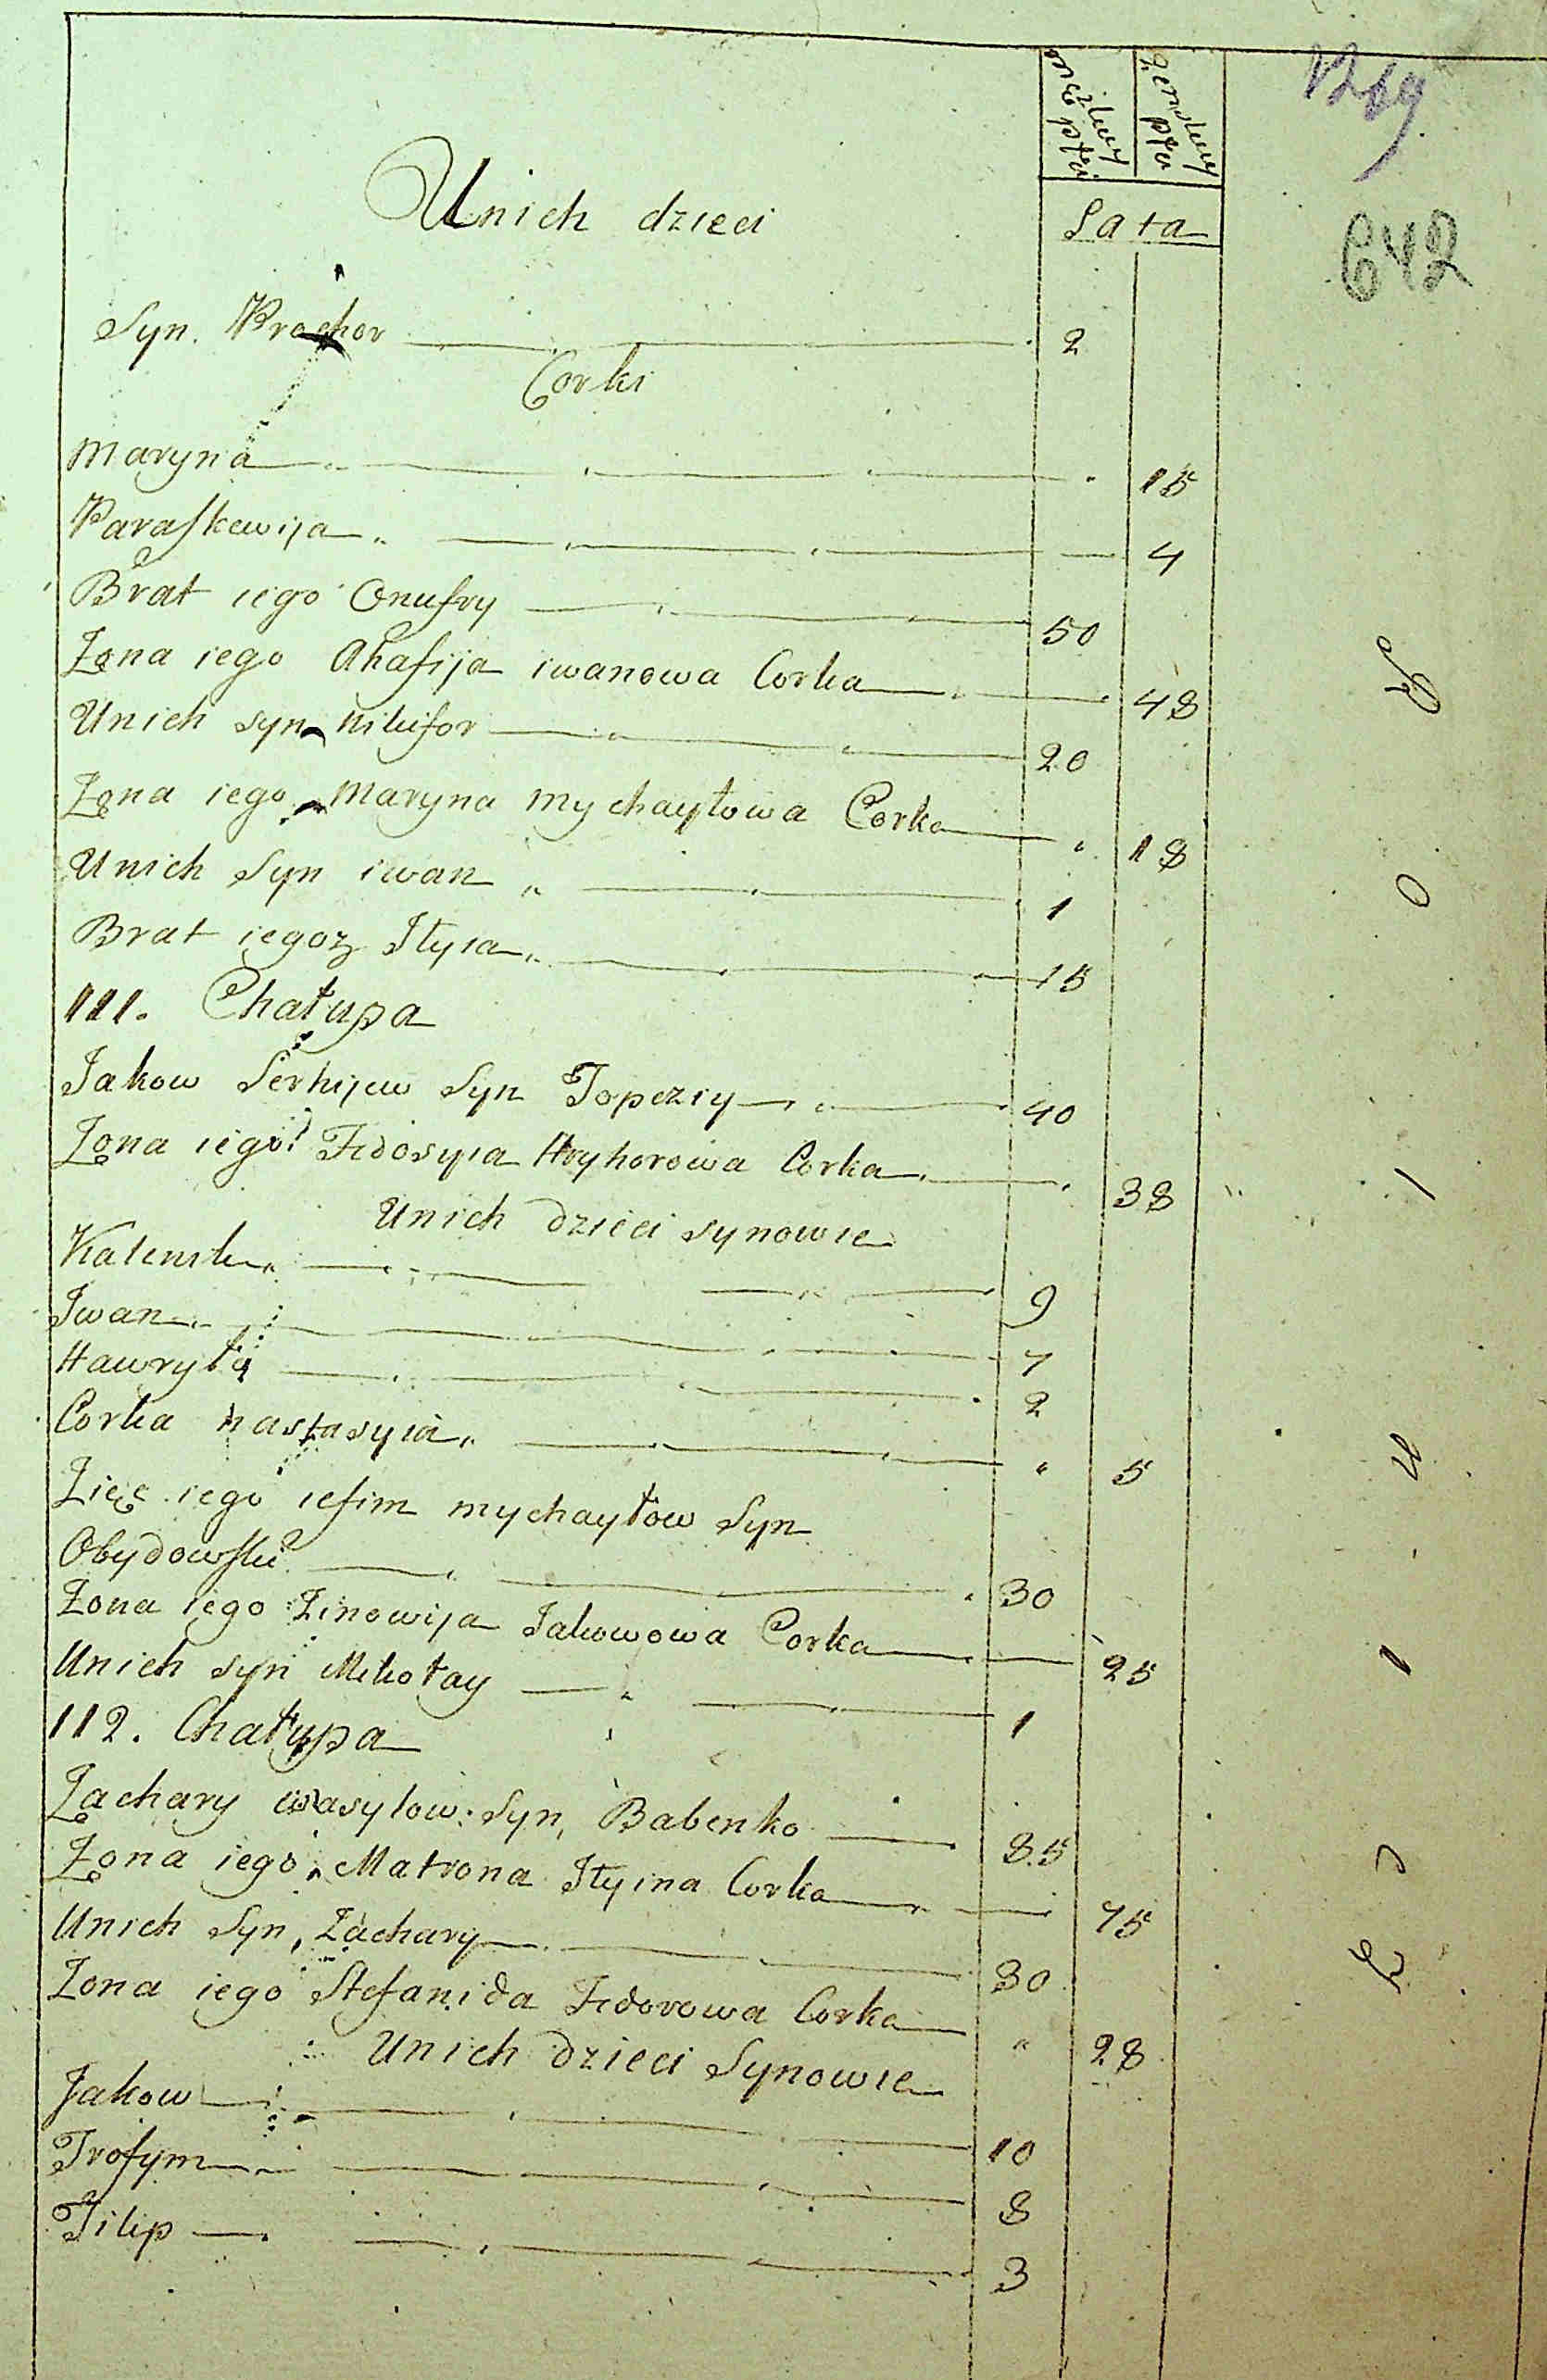 męzkiey płci
żenskiey płci
1269
642
Unich dzieci
Lata
Syn. Prochor 2
Corki
Maryna 15
Paraskewija 4
Brat iego Onufry 50
Zona iego Ahafija iwanowa Corka 48
Unich syn Nikifor 20
Zona iego Maryna Mychayłowa Corka 18
Unich Syn iwan 1
Brat iegoz Iłyia 15
111. Chałupa
Jakow Serhijew Syn 40
Zona iego Fedosyia Hryhorowa Corka 38
Unich dzieci synowie
Kalenik 9
Iwan 7
Hawryła 2
Corka Nastasyia 5
Zięc iego iefim mychayłow Syn
Obydowski 30
Zona iego Zinowija Jakowowa Corka 25
Unich syn Mikołay 1
112. Chałupa
Zachary wasylow Syn, Babenko 85
Zona iego Matrona Iłyina Corka 75
Unich Syn, Zachary 30
Zona iego Stefanida Fedorowa Corka 28
Unich dzieci Synowie
Jakow 10
Trofym 8
Filip 3